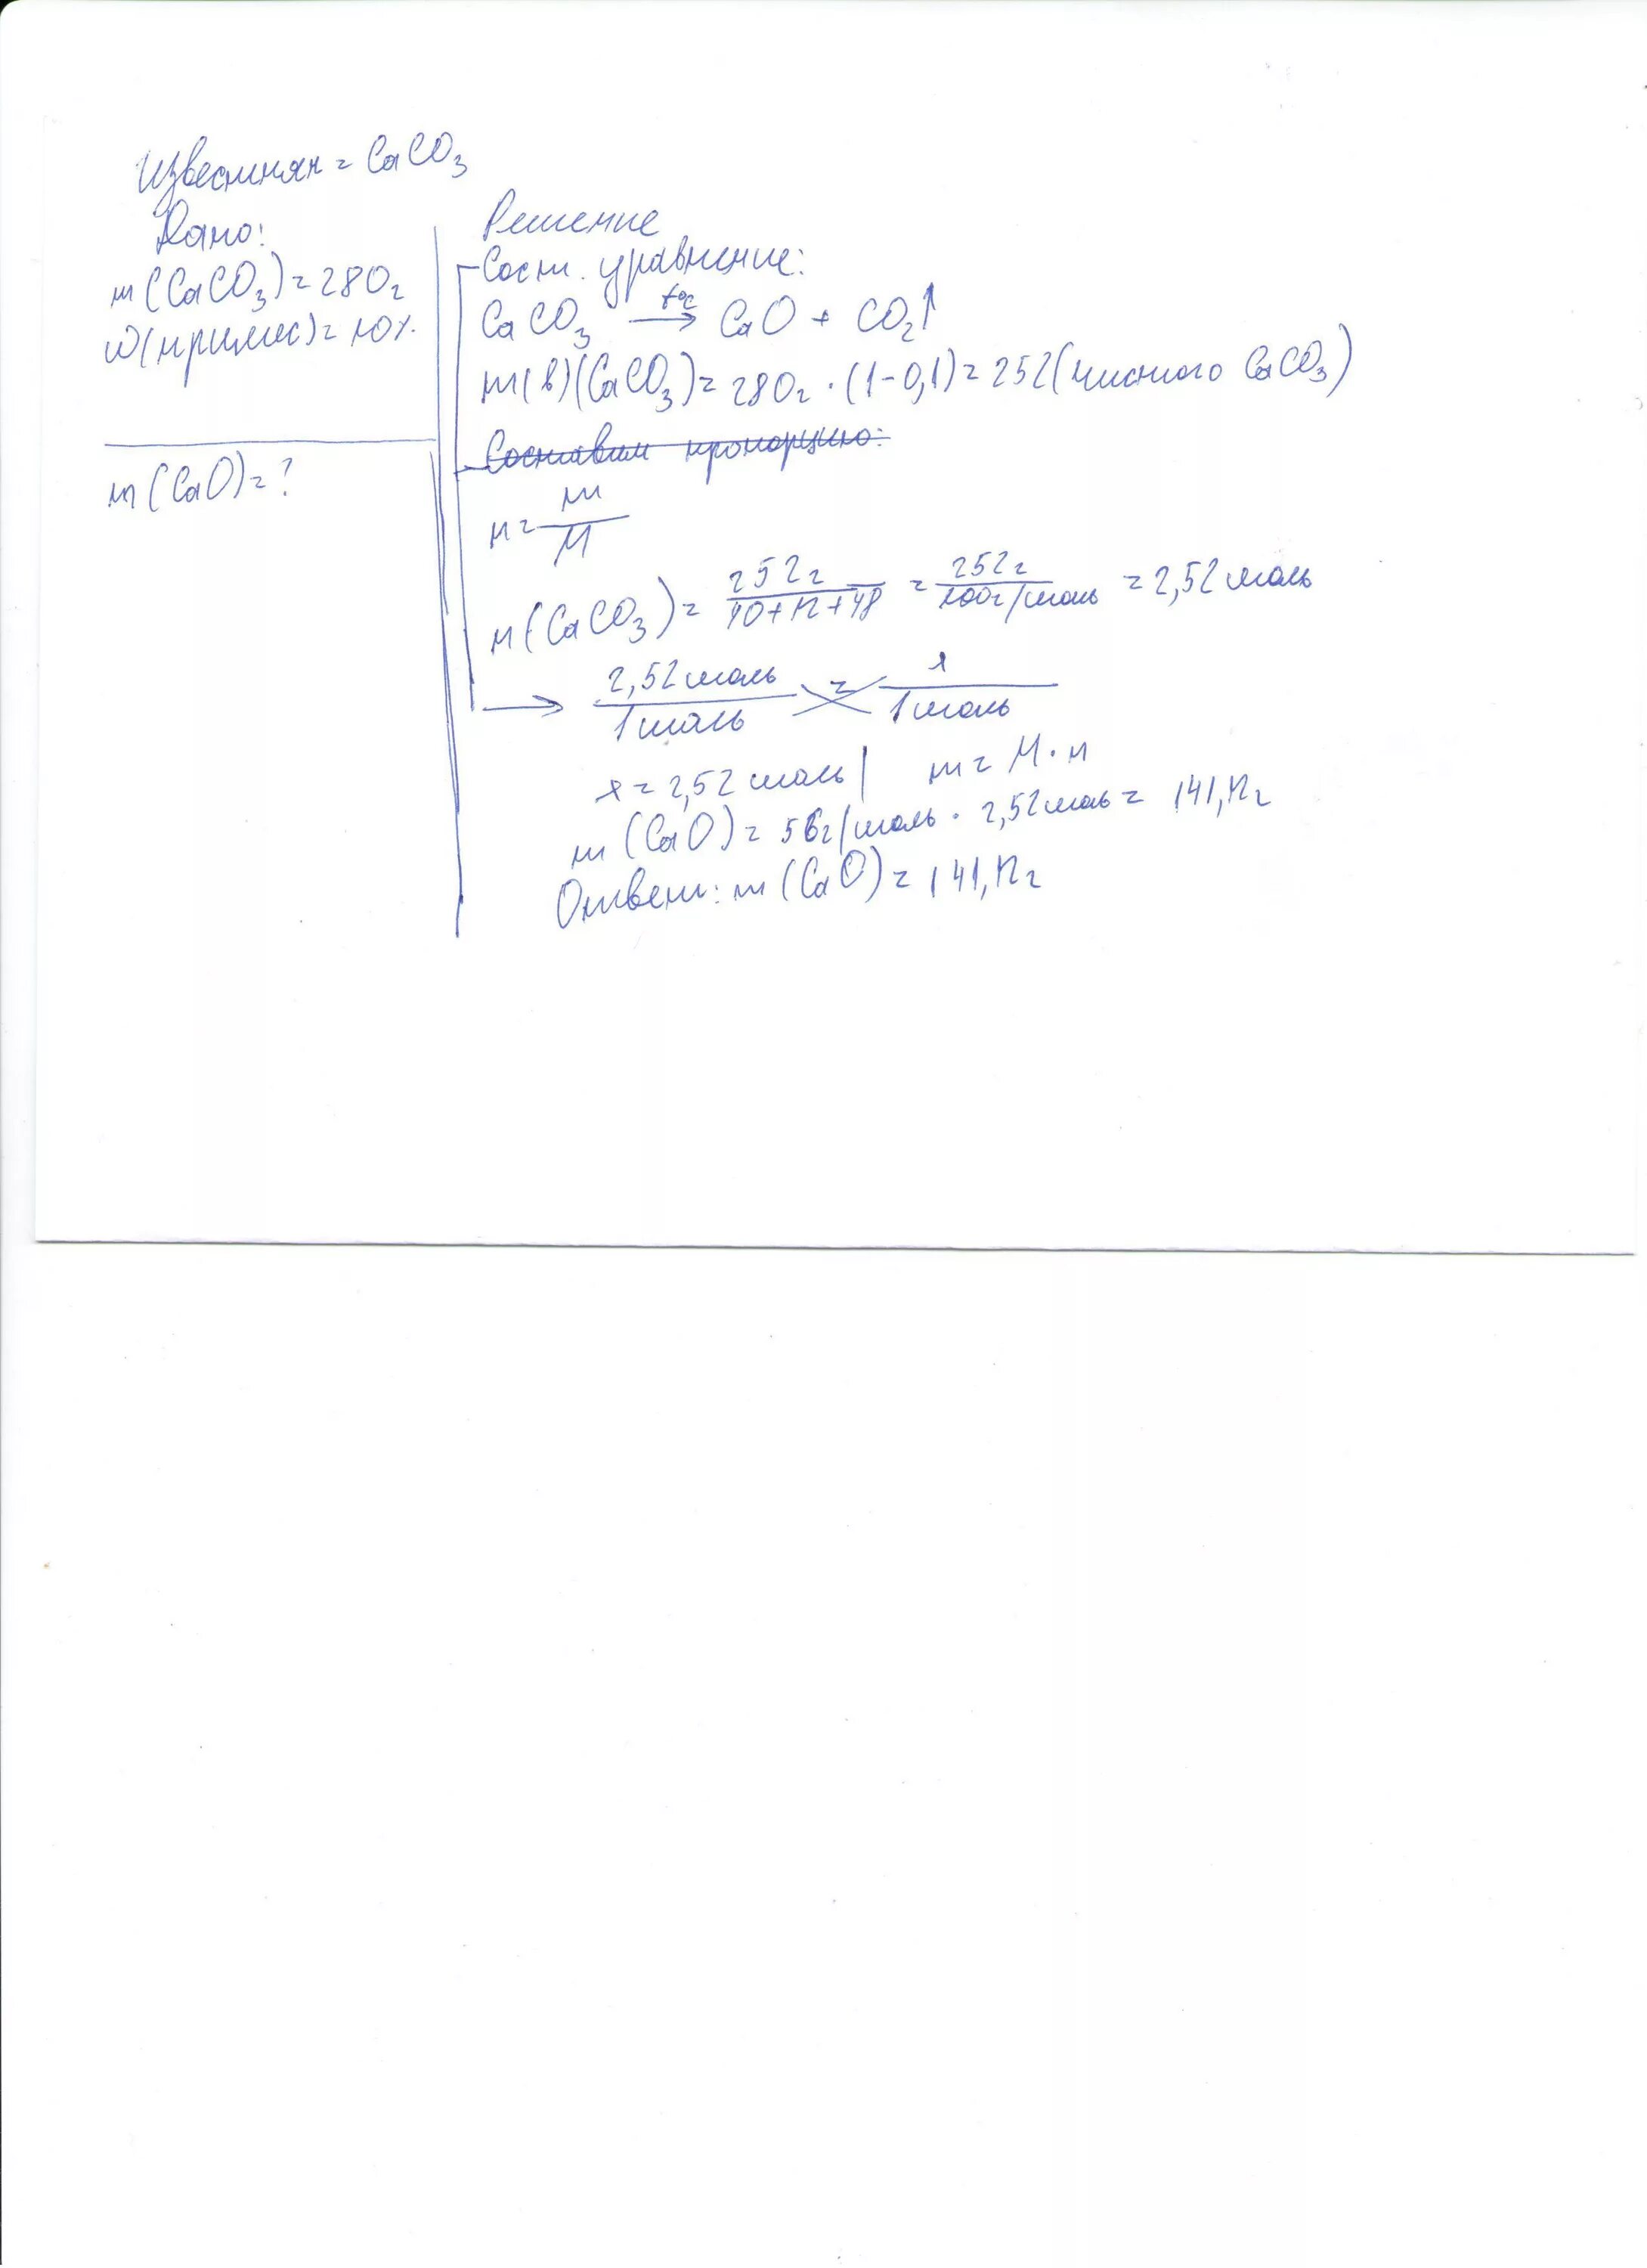 Известняк = CaCO₃
Дано:
m(CaCO₃) = 280г
W(примес) = 10%
m(CaO) = ?
Решение
Сост. уравнение:
CaCO₃ →t°C CaO + CO₂↑
m(в)(CaCO₃) = 280г · (1-0,1) = 252(чистого CaCO₃)
Составим пропорцию:
n = m/M
n(CaCO₃) = 252г/40+12+48 = 252г/100г/моль = 2,52 моль
→ 2,52 моль/1 моль = x/1 моль
x = 2,52 моль | m = M · n
m(CaO) = 56г/моль · 2,52 моль = 141,12г
Ответ: m(CaO) = 141,12г